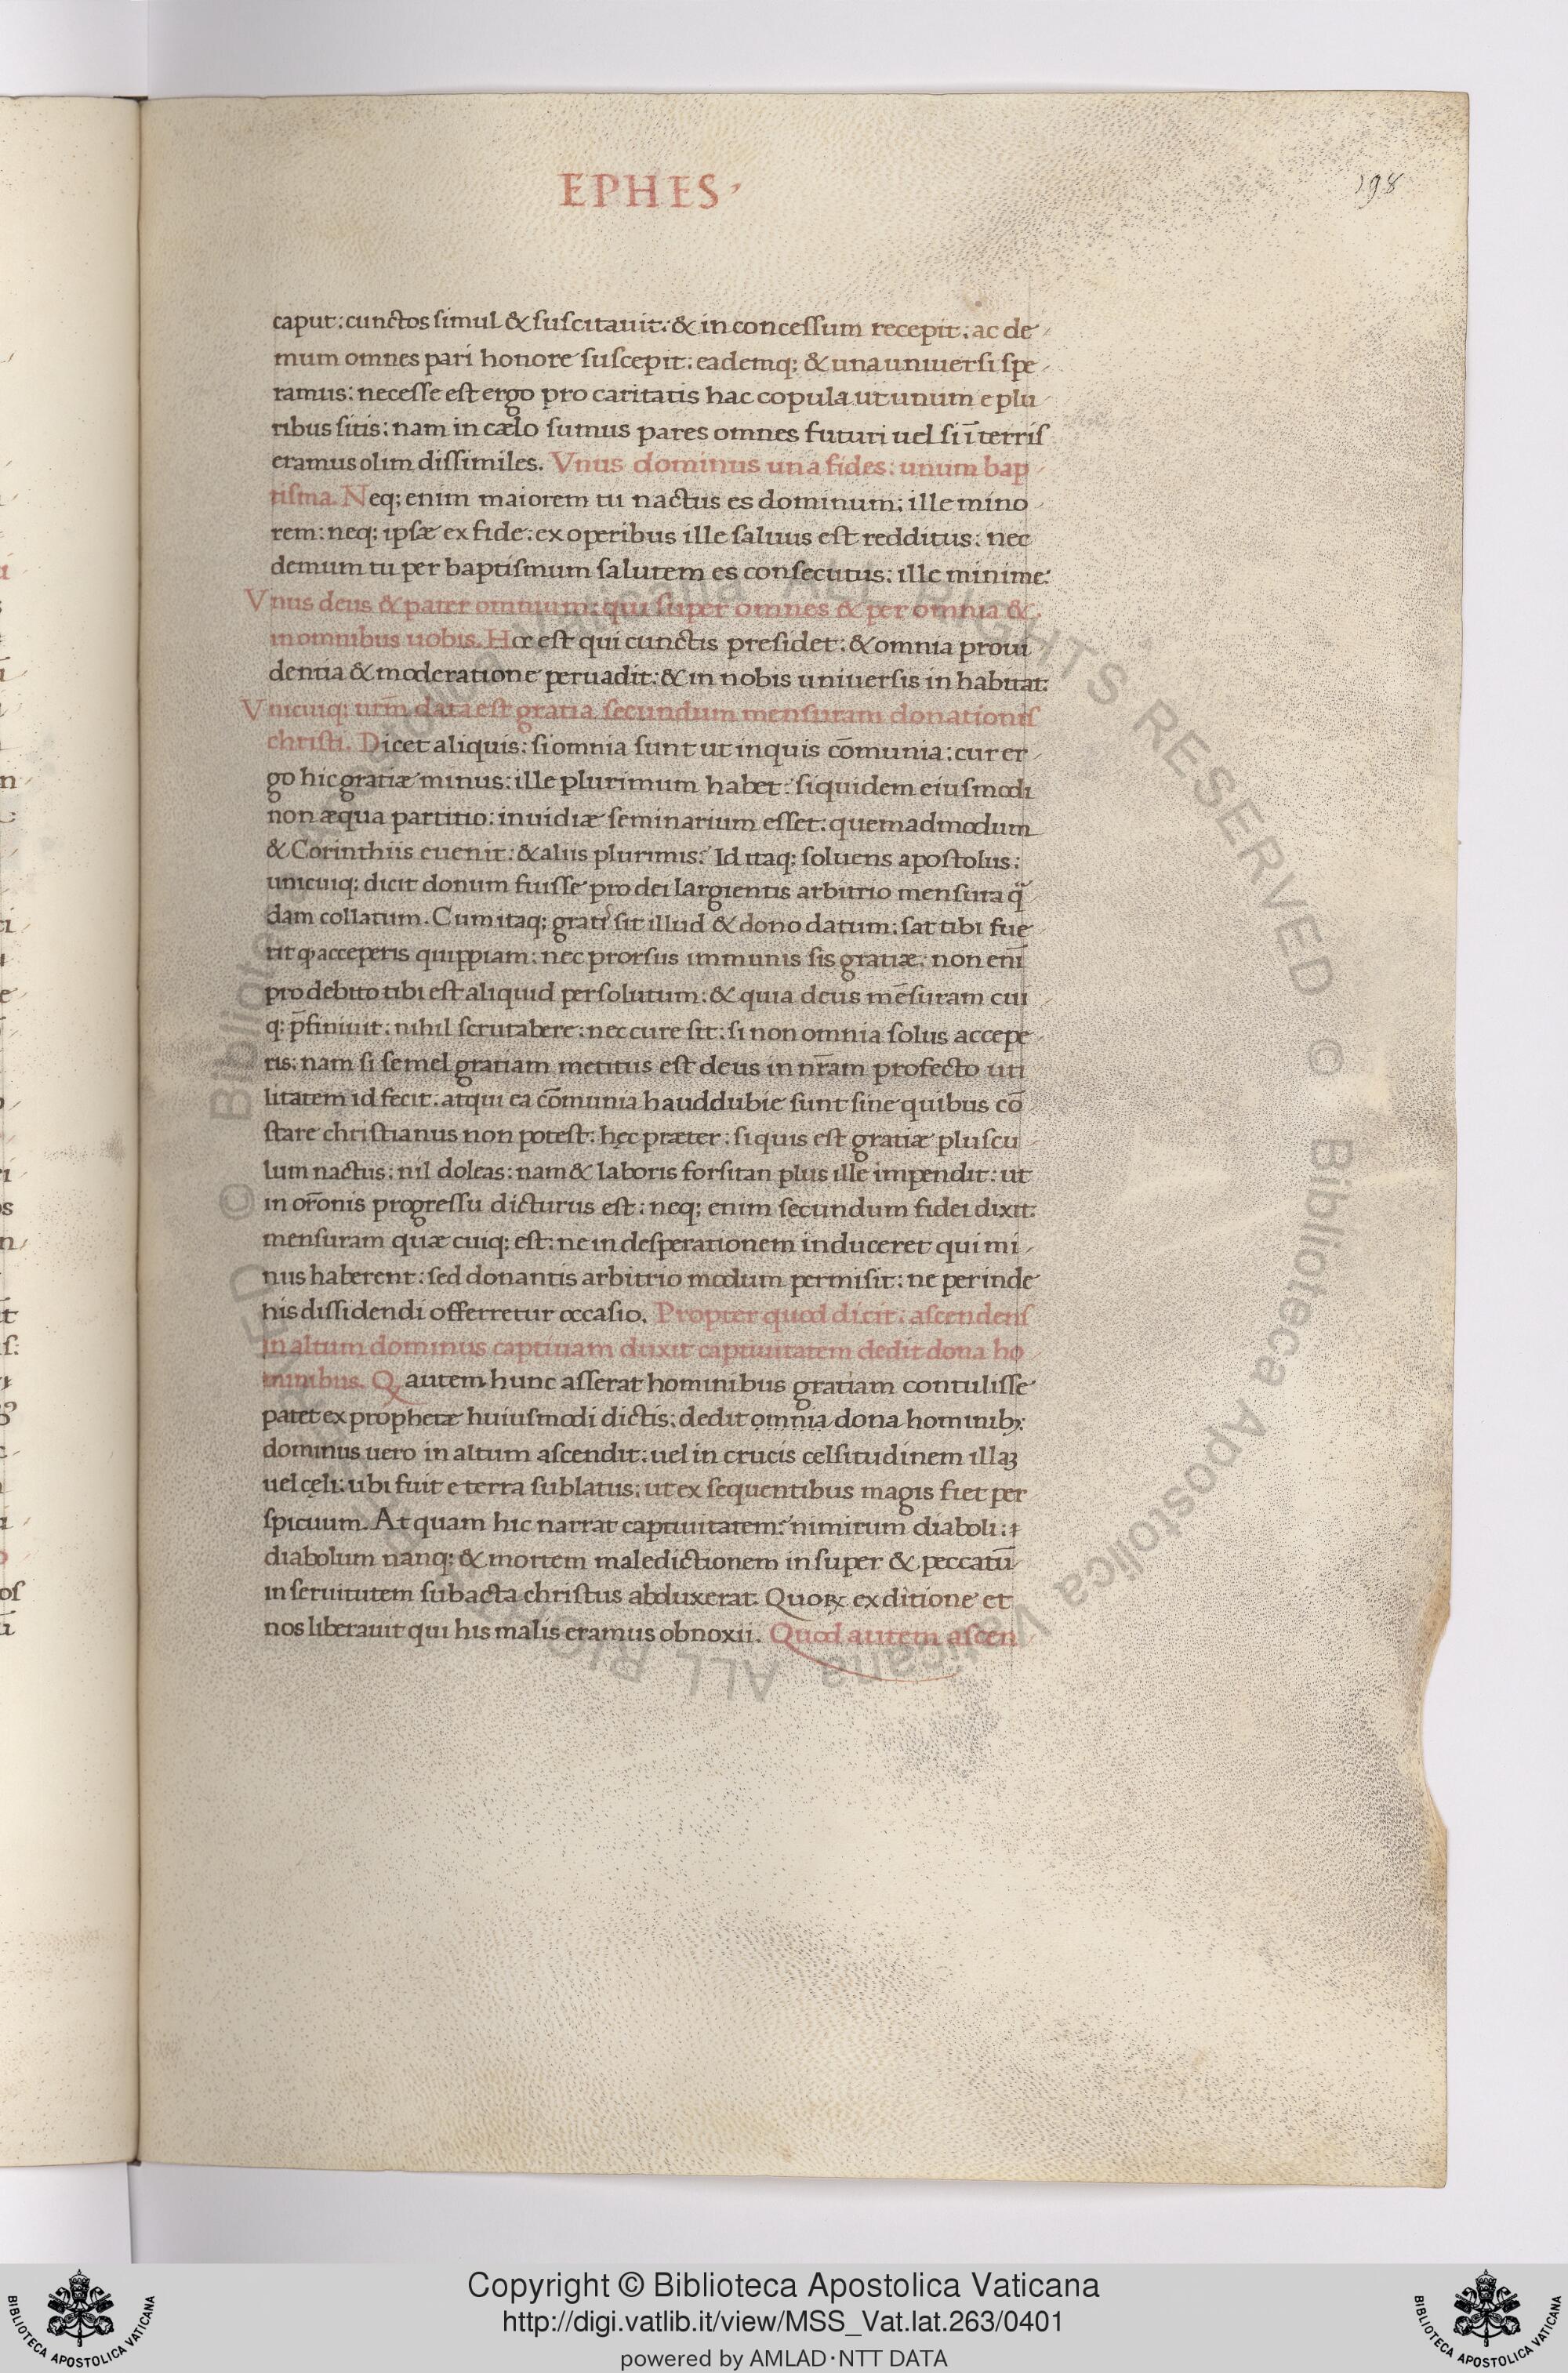 EPHES
198
caput: cunctos simul & suscitauit: & in concessum recepit: ac de
mum omnes pari honore suscepit: eademq; & una uniuersi spe
ramus: necesse est ergo pro caritatis hac copula ut unum e plu
ribus sitis: nam in cælo sumus pares omnes futuri uel si ī terris
eramus olim dissimiles. Vnus dominus una fides: unum bap
tisma. Neq; enim maiorem tu nactus es dominum: ille mino
rem: neq; ipsæ ex fide: ex operibus ille saluus est redditus: nec
demum tu per baptismum salutem es consecutus: ille minime:
Vnus deus & pater omnium: qui super omnes & per omnia &
in omnibus uobis. Hoc est qui cunctis presidet: & omnia proui
dentia & moderatione peruadit: & in nobis uniuersis in habitat:
Vnicuiq; urm̄ data est gratia secundum mensuram donationis
christi. Dicet aliquis: si omnia sunt ut inquis cōmunia: cur er
go hic gratiæ minus: ille plurimum habet: siquidem eiusmodi
non æqua partitio: inuidiæ seminarium esset: quemadmodum
& Corinthiis euenit: & aliis plurimis: Id itaq; soluens apostolus:
unicuiq; dicit donum fuisse pro dei largientis arbitrio mensura q̄
dam collatum. Cum itaq; gratis sit illud & dono datum: sat tibi fue
rit ꝙ acceperis quippiam: nec prorsus immunis sis gratiæ: non enī
pro debito tibi est aliquid persolutum: & quia deus mēsuram cui
q; p̄finiuit: nihil scrutabere: nec cure sit: si non omnia solus accepe
ris: nam si semel gratiam metitus est deus in nr̄am profecto uti
litatem id fecit: atqui ea cōmunia hauddubie sunt sine quibus cō
stare christianus non potest: hęc præter: si quis est gratiæ pluscu
lum nactus: nil doleas: nam & laboris forsitan plus ille impendit: ut
in or̄onis progressu dicturus est: neq; enim secundum fidei dixit:
mensuram quæ cuiq; est: ne in desperationem induceret qui mi
nus haberent: sed donantis arbitrio modum permisit: ne perinde
his dissidendi offerretur occasio. Propter quod dicit: ascendens
in altum dominus captiuam duxit captiuitatem dedit dona ho
minibus. Q autem hunc asserat hominibus gratiam contulisse
patet ex prophetæ huiusmodi dictis: dedit omnia dona hominibꝫ:
dominus uero in altum ascendit: uel in crucis celsitudinem illaꝫ
uel cęli: ubi fuit e terra sublatus: ut ex sequentibus magis fiet per
spicuum. At quam hic narrat captiuitatem: nimirum diaboli:
diabolum nanq; & mortem maledictionem insuper & peccatū
in seruitutem subacta christus abduxerat. Quoꝝ ex ditione et
nos liberauit qui his malis eramus obnoxii. Quod autem ascen
Copyright © Biblioteca Apostolica Vaticana
http://digi.vatlib.it/view/MSS_Vat.lat.263/0401
powered by AMLAD·NTT DATA
BIBLIOTECA APOSTOLICA VATICANA
BIBLIOTECA APOSTOLICA VATICANA
© Biblioteca Apostolica Vaticana ALL RIGHTS RESERVED